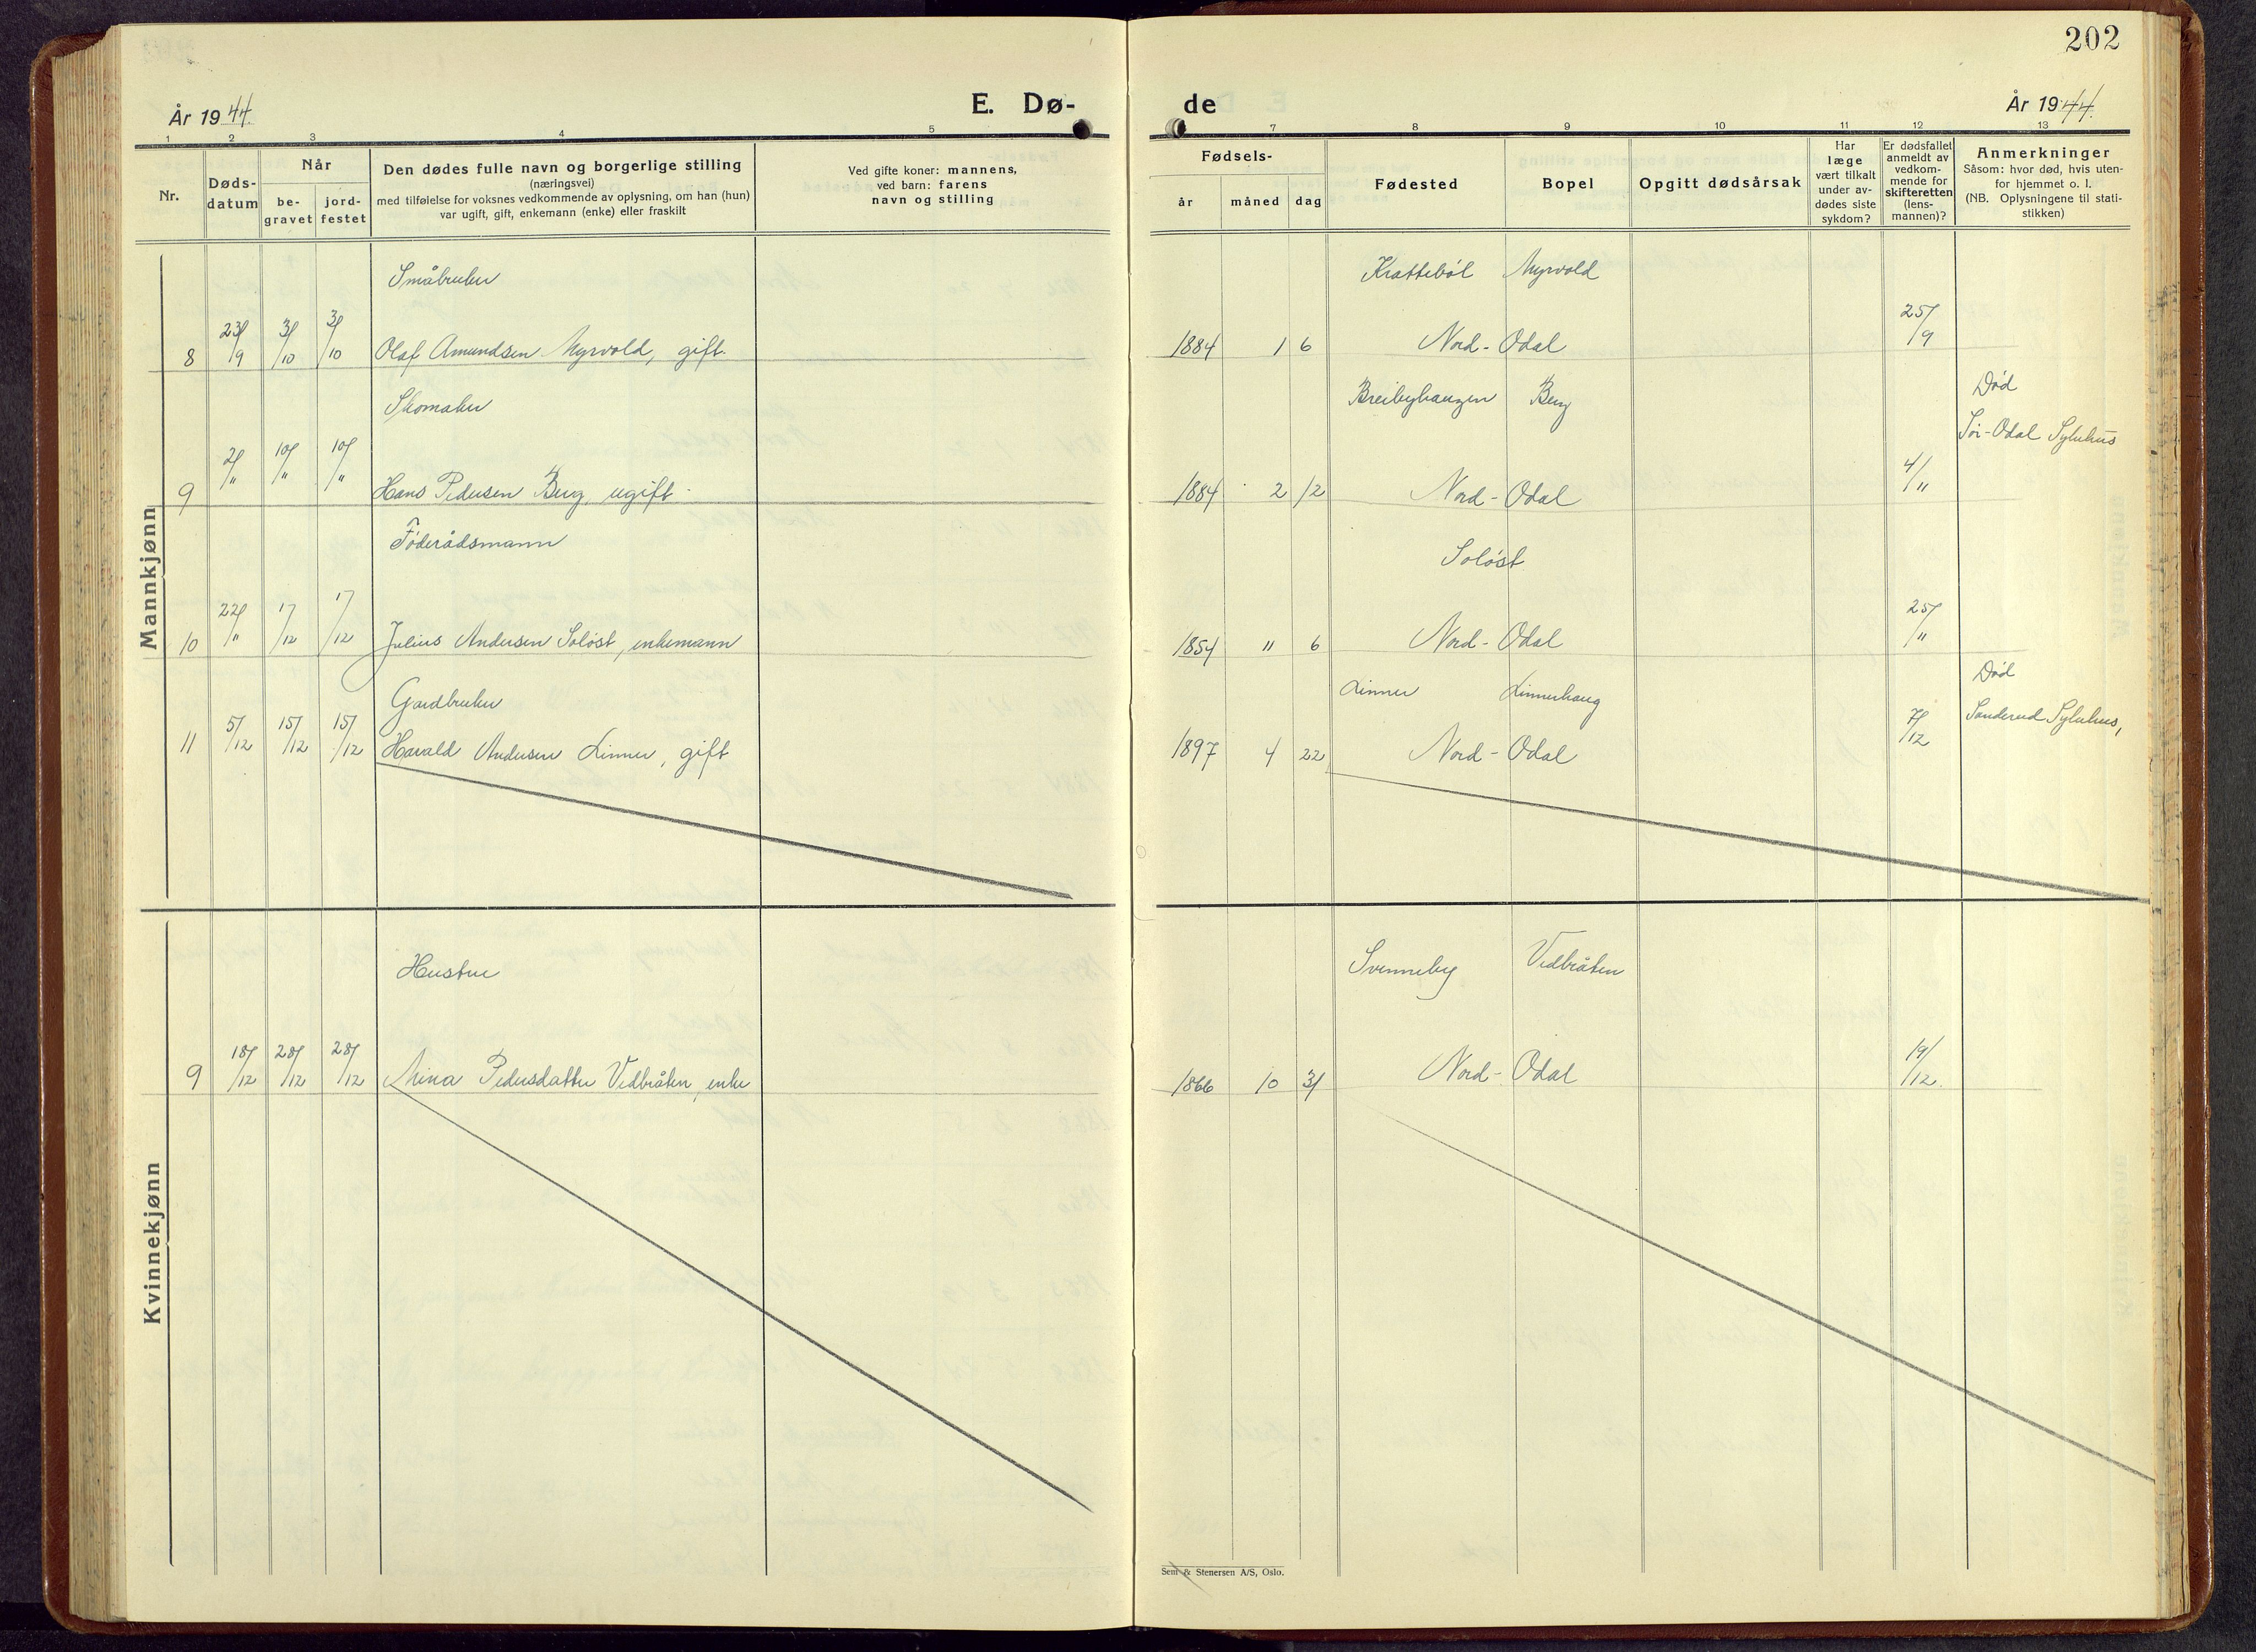 202
År 1944.
E. Dø-
de
År 1944.
1 2 3 4 5
7 8 9 10 11 12 13
Nr.
Døds-
datum
Når
be-
gravet
jord-
festet
Den dødes fulle navn og borgerlige stilling
(næringsvei)
med tilføielse for voksnes vedkommende av oplysning, om han (hun)
var ugift, gift, enkemann (enke) eller fraskilt
Ved gifte koner: mannens,
ved barn: farens
navn og stilling
Fødsels-
år måned dag
Fødested
Bopel
Opgitt dødsårsak
Har
læge
vært tilkalt
under av-
dødes siste
sykdom?
Er dødsfallet
anmeldt av
vedkom-
mende for
skifteretten
(lens-
mannen)?
Anmerkninger
Såsom: hvor død, hvis uten-
for hjemmet o. l.
(NB. Oplysningene til stati-
stikken)
Mannkjønn
Småbruker Krattebøl Myrvold
8 23/9 3/10 3/10 Olaf Amundsen Myrvold, gift. 1884 1 6 Nord-Odal 25/9
Skomaker Breibyhaugen Berg Død
Sør-Odal Sykehus
9 2/" 10/" 10/" Hans Pedersen Berg, ugift 1884 2 12 Nord-Odal 4/11
Føderådsmann Soløst
10 22/" 1/12 1/12 Julius Andersen Soløst, enkemann 1854 11 6 Nord-Odal 25/11
Gardbruker Linner Linnerhaug Død
Sanderud Sykehus,
11 5/12 15/12 15/12 Harald Andersen Linner, gift 1897 4 22 Nord-Odal 7/12
Kvinnekjønn
Hustru Svenneby Vedbråten
9 18/12 28/12 28/12 Mina Pedersdatter Vedbråten, enke 1866 10 31 Nord-Odal 19/12.
Sem & Stenersen A/S, Oslo.